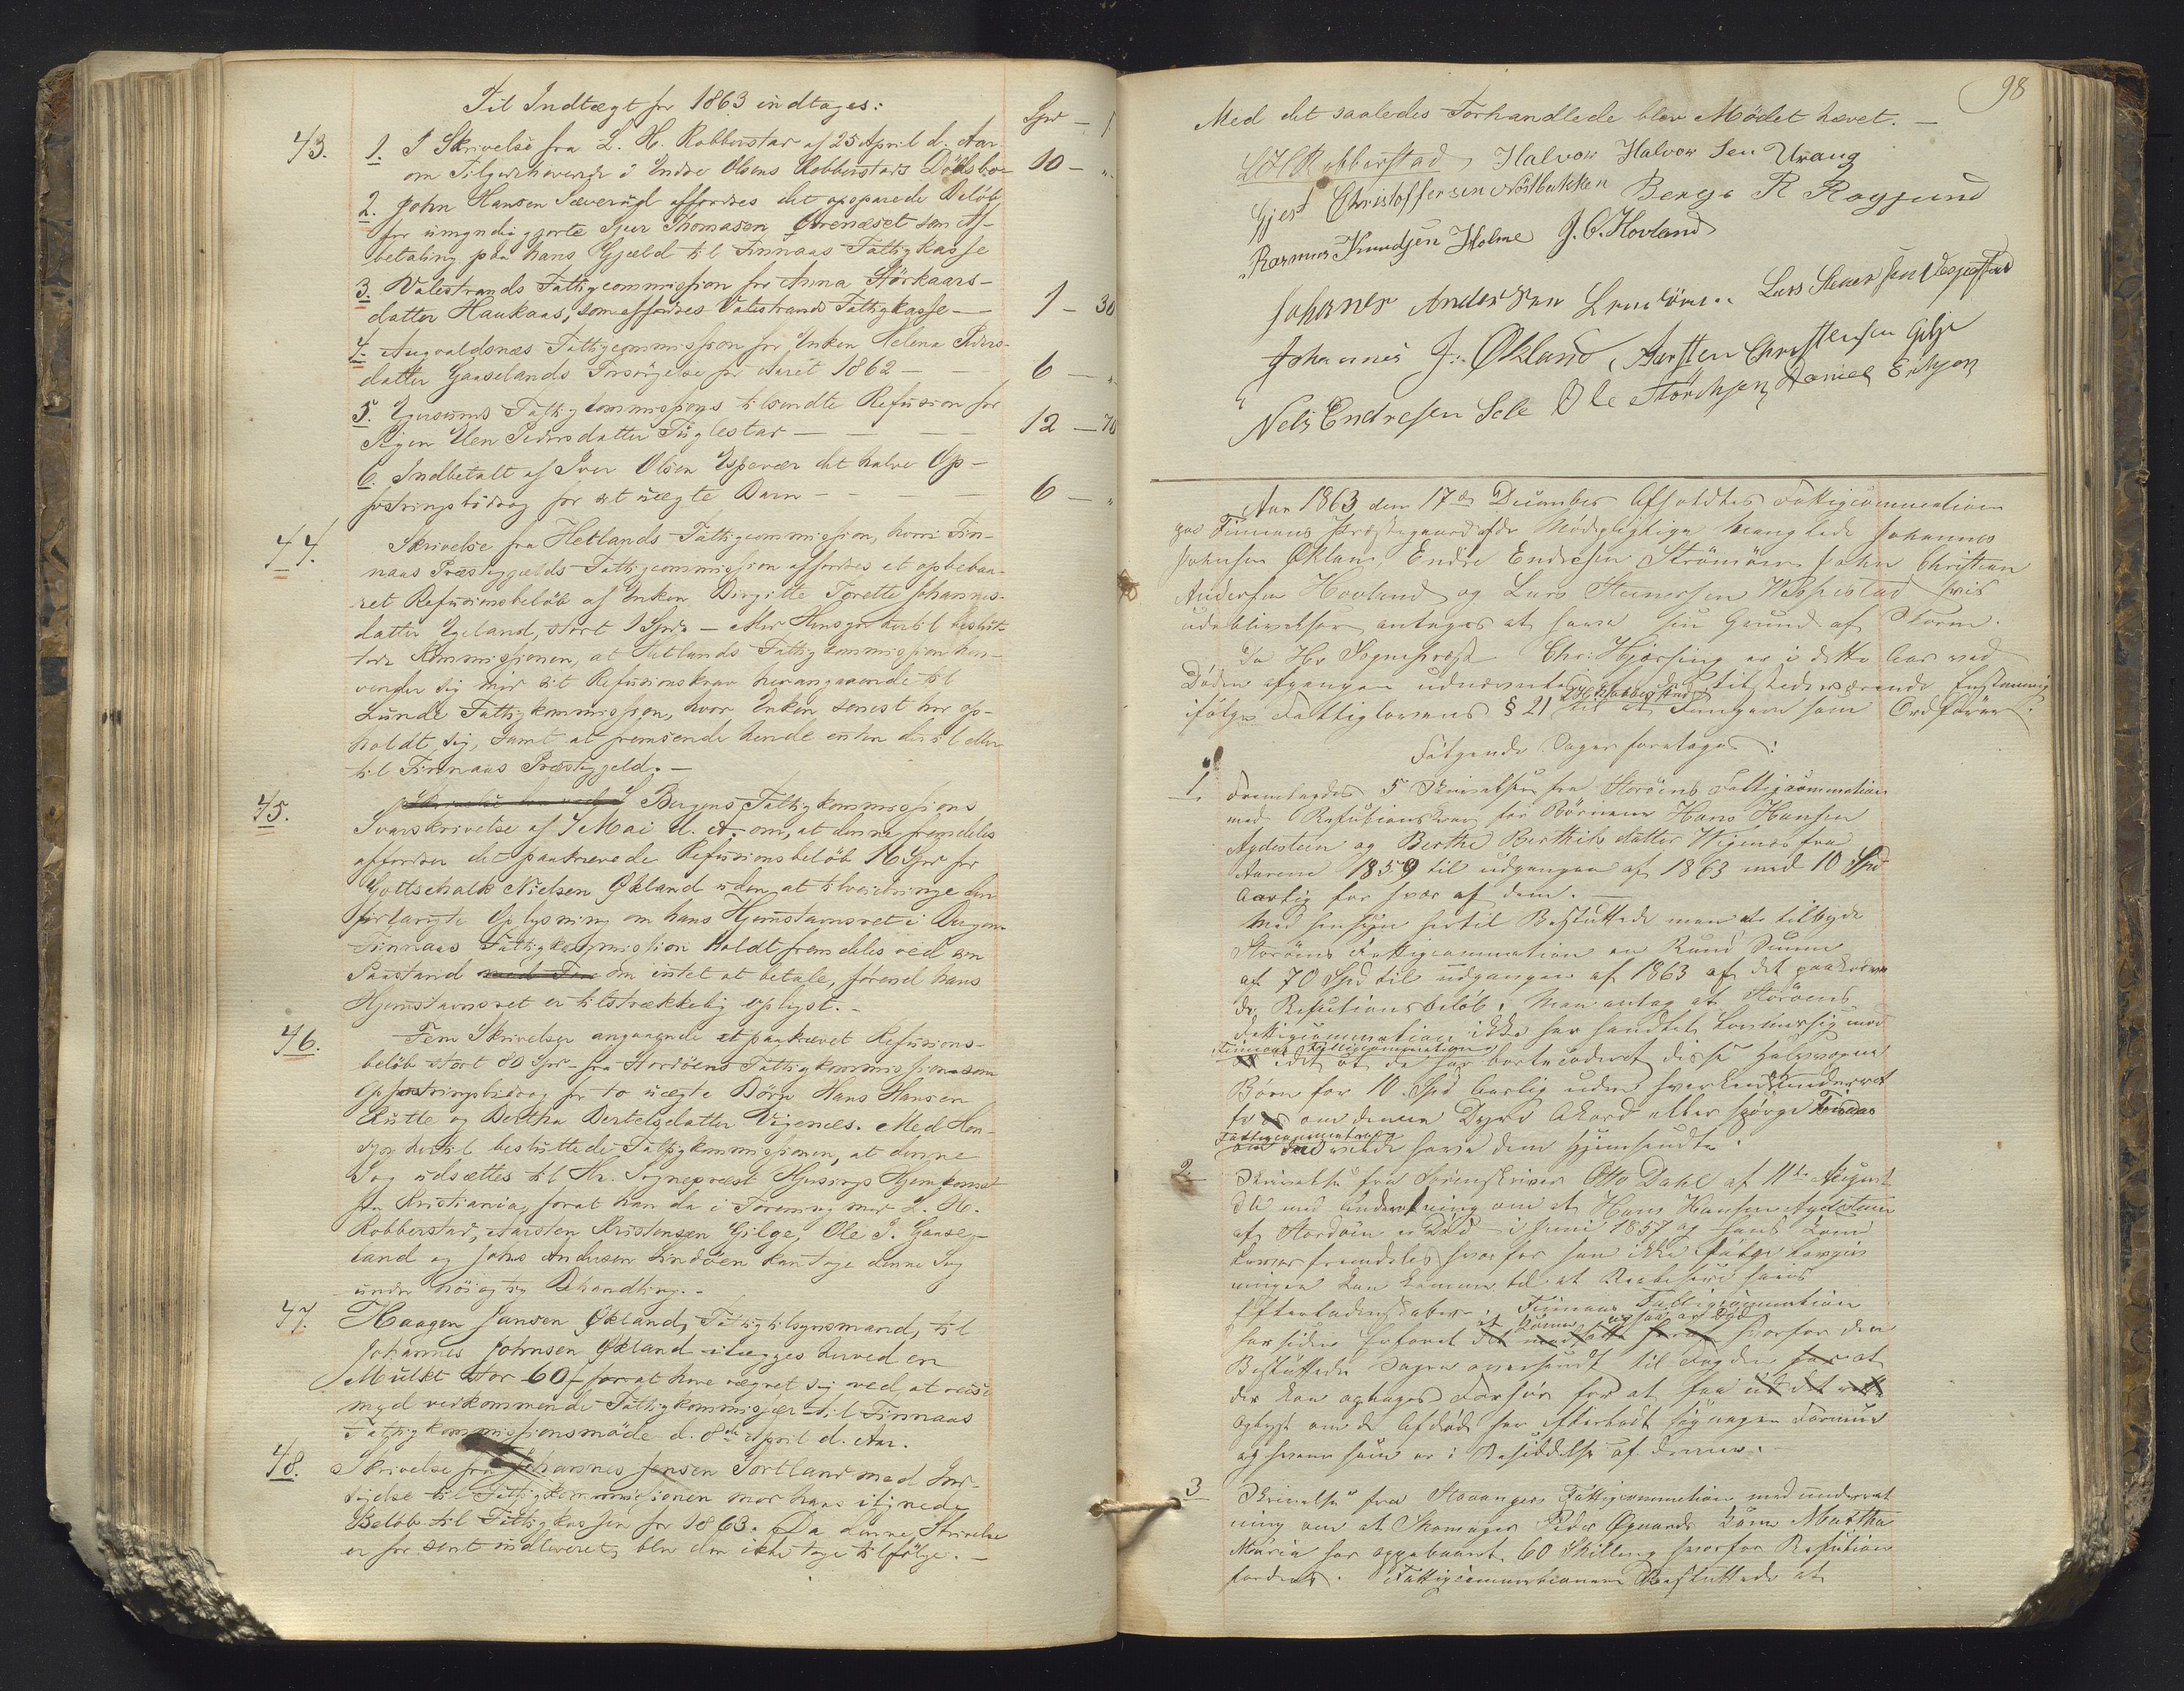 Til Indtægt for 1863 indtages:
Spd –
43. 1. I Skrivelse fra L. H. Robberstad af 25 April d. Aar
om Tilgodehavende i Endre Olsens Robberstads Dödsboe 10 – "
2. John Hansen Sæveruyd affordres det opsparede Belöb
for umyndiggjorte Sjur Thomasen Grenæset som Af-
betaling paa hans Gjæld til Finnaas Fattigkasse
3. Valestrands Fattigcommission for Anna Störkaars-
datter Haukaas, som affordres Valestrands Fattigkasse – 1 – 30
4. Augvaldsnæs Fattigcommission for Enken Helena Peders-
datter Gaaselands Forsörgelse for Aaret 1862 – 6 – "
5. Egersunds Fattigcommissions tilsendte Refusion for
Pigen Elen Pedersdatter Fuglestad – 12 – 70
6. Indbetalt af Iver Olsen Espevær det halve Op-
fostringsbidrag for et uægte Barn – 6 – "
44. Skrivelse fra Hetlands Fattigcommission, hvori Fin-
naas Præstegjælds Fattigcommission affordres et opbebaa-
ret Refusionsbelöb af Enken Birgitte Torette Johannes-
datter Egeland, stort 1 Spd – Med Hensyn hertil beslut-
tede Kommissionen, at Hetlands Fattigkommission hen-
vender sig med sit Refusionskrav herangaaende til
Lunde Fattigkommission, hvor Enken senest har op-
holdt sig, samt at fremsende hende enten dertil eller
til Finnaas Præstegjeld. –
45. Bergens Fattigkommissions
Svarskrivelse af 7 Mai d. A. om, at denne fremdeles
affordrer det paakrævede Refusionsbelöb 16 Spd for
Gottschalk Nielsen Økland uden at tilveiebringe den
forlangte Oplysning om hans Hjemstavnsret i Bergen.
Finnaas Fattigkommission holdt fremdeles ved sin
Paastand om intet at betale, förend hans
Hjemstavnsret er tilstrækkelig oplyst. –
46. Fem Skrivelser angaaende et paakrævet Refusions-
belöb stort 80 Spd – fra Stordöens Fattigkommission som
Opfostringsbidrag for to uægte Börn Hans Hansen
Rutle og Bertha Bertelsdatter Vigenæs. Med Hen-
syn hertil besluttede Fattigkommissionen, at denne
Sag udsættes til Hr. Sognepræst Hjorsings Hjemkomst
fra Kristiania, forat han da i Forening med L. H.
Robberstad, Karsten Kristensen Gilge, Ole J. Gaase-
land og Johs Andersen Lindöen kan tage denne Sag
under nöiagtig Behandling. –
47. Haagen Jansen Økland, Fattigtilsynsmand, til
Johannes Johnsen Økland ilægges herved en
Mulkt stor 60 ſ for at have vægret sig ved, at reise
med vedkommende Fattigkommissjær til Finnaas
Fattigkommissionsmöde d. 8de April d. Aar.
48. Skrivelse fra Johannes Jensen Tortland med Ind-
sigelse til Fattigkommissionen mod hans ilignede
Belöb til Fattigkassen for 1863. Da denne Skrivelse
er for sent indleveret, blev den ikke taget tilfölge. –
98
Med det saaledes Forhandlede blev Mödet hævet. –
L H Robberstad, Halvor Halvorsen Urang
Gjert Christoffersen Nöstbakken Berge R Røgsund
Rasmus Knudsen Holme J. C. Hovland
Johannes Andersen Lindöen. Lars Steensen Vespestad
Johannes J. Økland, Karsten Christensen Gilje
Nels Endresen Sele Ole Störchsen Daniel Erikson
Aar 1863 den 17de December Afholdtes Fattigcommission
paa Finnaas Præstegaard. Af de Mödepligtige manglede Johannes
Johnsen Økland, Endre Endresen Strömöen, John Christian
Andersen Hovland og Lars Steensen Wespestad hvis
udeblivelser antages at have sin Grund af Storm.
Da Hr Sognepræst Chr: Hjorsing er i dette Aar ved
Döden afgangen udnævntes L H Robberstad af de tilstedeværende Enstemmig
ifölge Fattiglovens § 21 til at Fungere som Ordförer.
Fölgende Sager foretoges:
1. Fremlagdes 5 Skrivelser fra Storöens Fattigcommission
med Refutionskrav for Börnene Hans Hansen
Aadesteen og Berthe Berthilsdatter Wigenæs fra
Aarene 1859 til udgangen af 1863 med 10 Spd
Aarlig for hver af dem. –
Med hensyn hertil Besluttede man at tilbyde
Storöens Fattigcommission en Rund Summa
af 70 Spd til udgangen af 1863 af det paakræve
de Refutionsbelöb. Man antog at Storöens
Fattigcommission ikke har handlet Lovmæssig mod
Finnaas Fattigcommission
idet at de har bortaccorderet disse halvvoxne
Börn for 10 Spd Aarlig uden hverken at underret
te os om denne Dyre Akord eller spörge Finnaas
Fattigcommission
om den vilde have dem hjemsendte.
2. Skrivelse fra Sorenskriver Otto Dahl af 11te August
d A med Underretning om at Hans Hansen Aadesteen
af Stordöen er Död i Juni 1857 og hans Kone
lever fremdeles hvorfor han ikke ifölge Lovgiv
ningen kan komme til at Beslutte hans
Efterladenskaber. Finnaas Fattigcommission
har siden Erfaret at Konen ogsaa er Död hvorfor den
Besluttede Sagen oversendt til Fogden at
der kan optages Forhör for at faa
oplyst om de Afdöde har efterladt sig nogen Formue
og hvem som er i Besiddelse af denne. –
3. Skrivelse fra Stavangers Fattigcommission med underret
ning om at Skomager Peder Øgaards Kone Martha
Maria har oppebaaret 60 Skilling hvorfor Refution
fordres. Fattigcommissionen Besluttede at